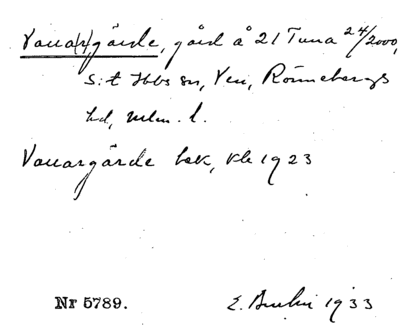 Vana(r)gärde, gård å 21 Tuna 24/2000,
S:t Ibbs sn, Ven, Rönnebergs
hd, Mlm. l.
Vanargärde bek, Kb 1923
Nr 5789. E. 1933